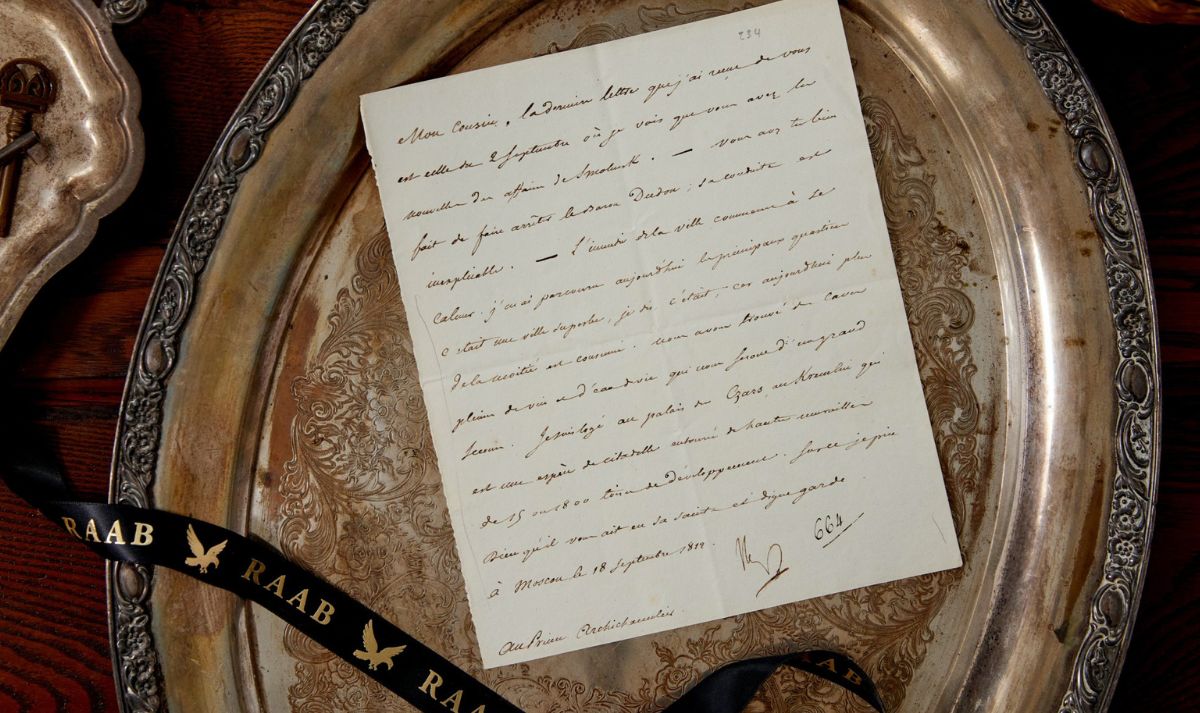 234
Mon Cousin, la dernière lettre que j'ai reçue de vous
est celle du 2 Septembre où je vois que vous avez la
nouvelle des affaires de Smolensk. — vous avez très bien
fait de faire arrêter le Baron Dudon; sa conduite est
inexplicable. — L'incendie de la ville commence à se
calmer. j'en ai parcouru aujourd'hui les principaux quartiers
c'était une ville superbe, je dis c'était, car aujourd'hui plus
de la moitié est consumé. nous avons trouvé des caves
pleines de vin et d'eau de vie qui nous seront d'un grand
secours. Je suis logé au palais des Czars au Kremlin qui
est une espèce de citadelle entouré de hautes murailles
de 15 ou 1800 toises de développement. Sur ce je prie
Dieu qu'il vous ait en sa sainte et digne garde.
à Moscou le 18 Septembre 1812.
664
au Prince Archichancelier.
RAAB RAAB RAAB RAAB